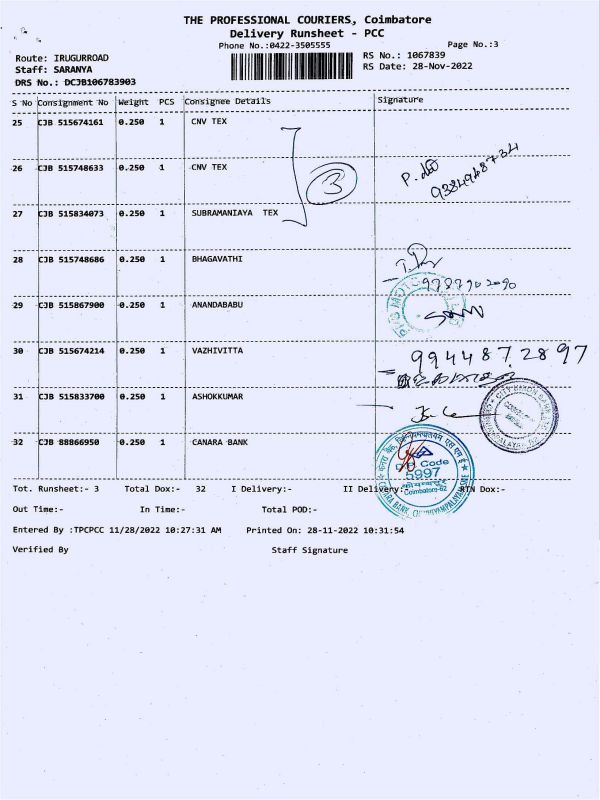 THE PROFESSIONAL COURIERS, Coimbatore
Delivery Runsheet - PCC
Phone No.:0422-3505555
Page No.:3
Route: IRUGURROAD
RS No.: 1067839
Staff: SARANYA
RS Date: 28-Nov-2022
DRS No.: DCJB106783903
S No Consignment No Weight PCS Consignee Details Signature
25 CJB 515674161 0.250 1 CNV TEX
26 CJB 515748633 0.250 1 CNV TEX
3
9384948734
27 CJB 515834073 0.250 1 SUBRAMANIAYA TEX
28 CJB 515748686 0.250 1 BHAGAVATHI
9787902090
29 CJB 515867900 0.250 1 ANANDABABU
30 CJB 515674214 0.250 1 VAZHIVITTA
9944872897
31 CJB 515833700 0.250 1 ASHOKKUMAR
CITY UNION BANK
32 CJB 88866950 0.250 1 CANARA BANK
Code
5997
Coimbatore-62
Tot. Runsheet:- 3 Total Dox:- 32 I Delivery:- II Delivery:- RTN Dox:-
Out Time:- In Time:- Total POD:-
Entered By :TPCPCC 11/28/2022 10:27:31 AM Printed On: 28-11-2022 10:31:54
Verified By Staff Signature